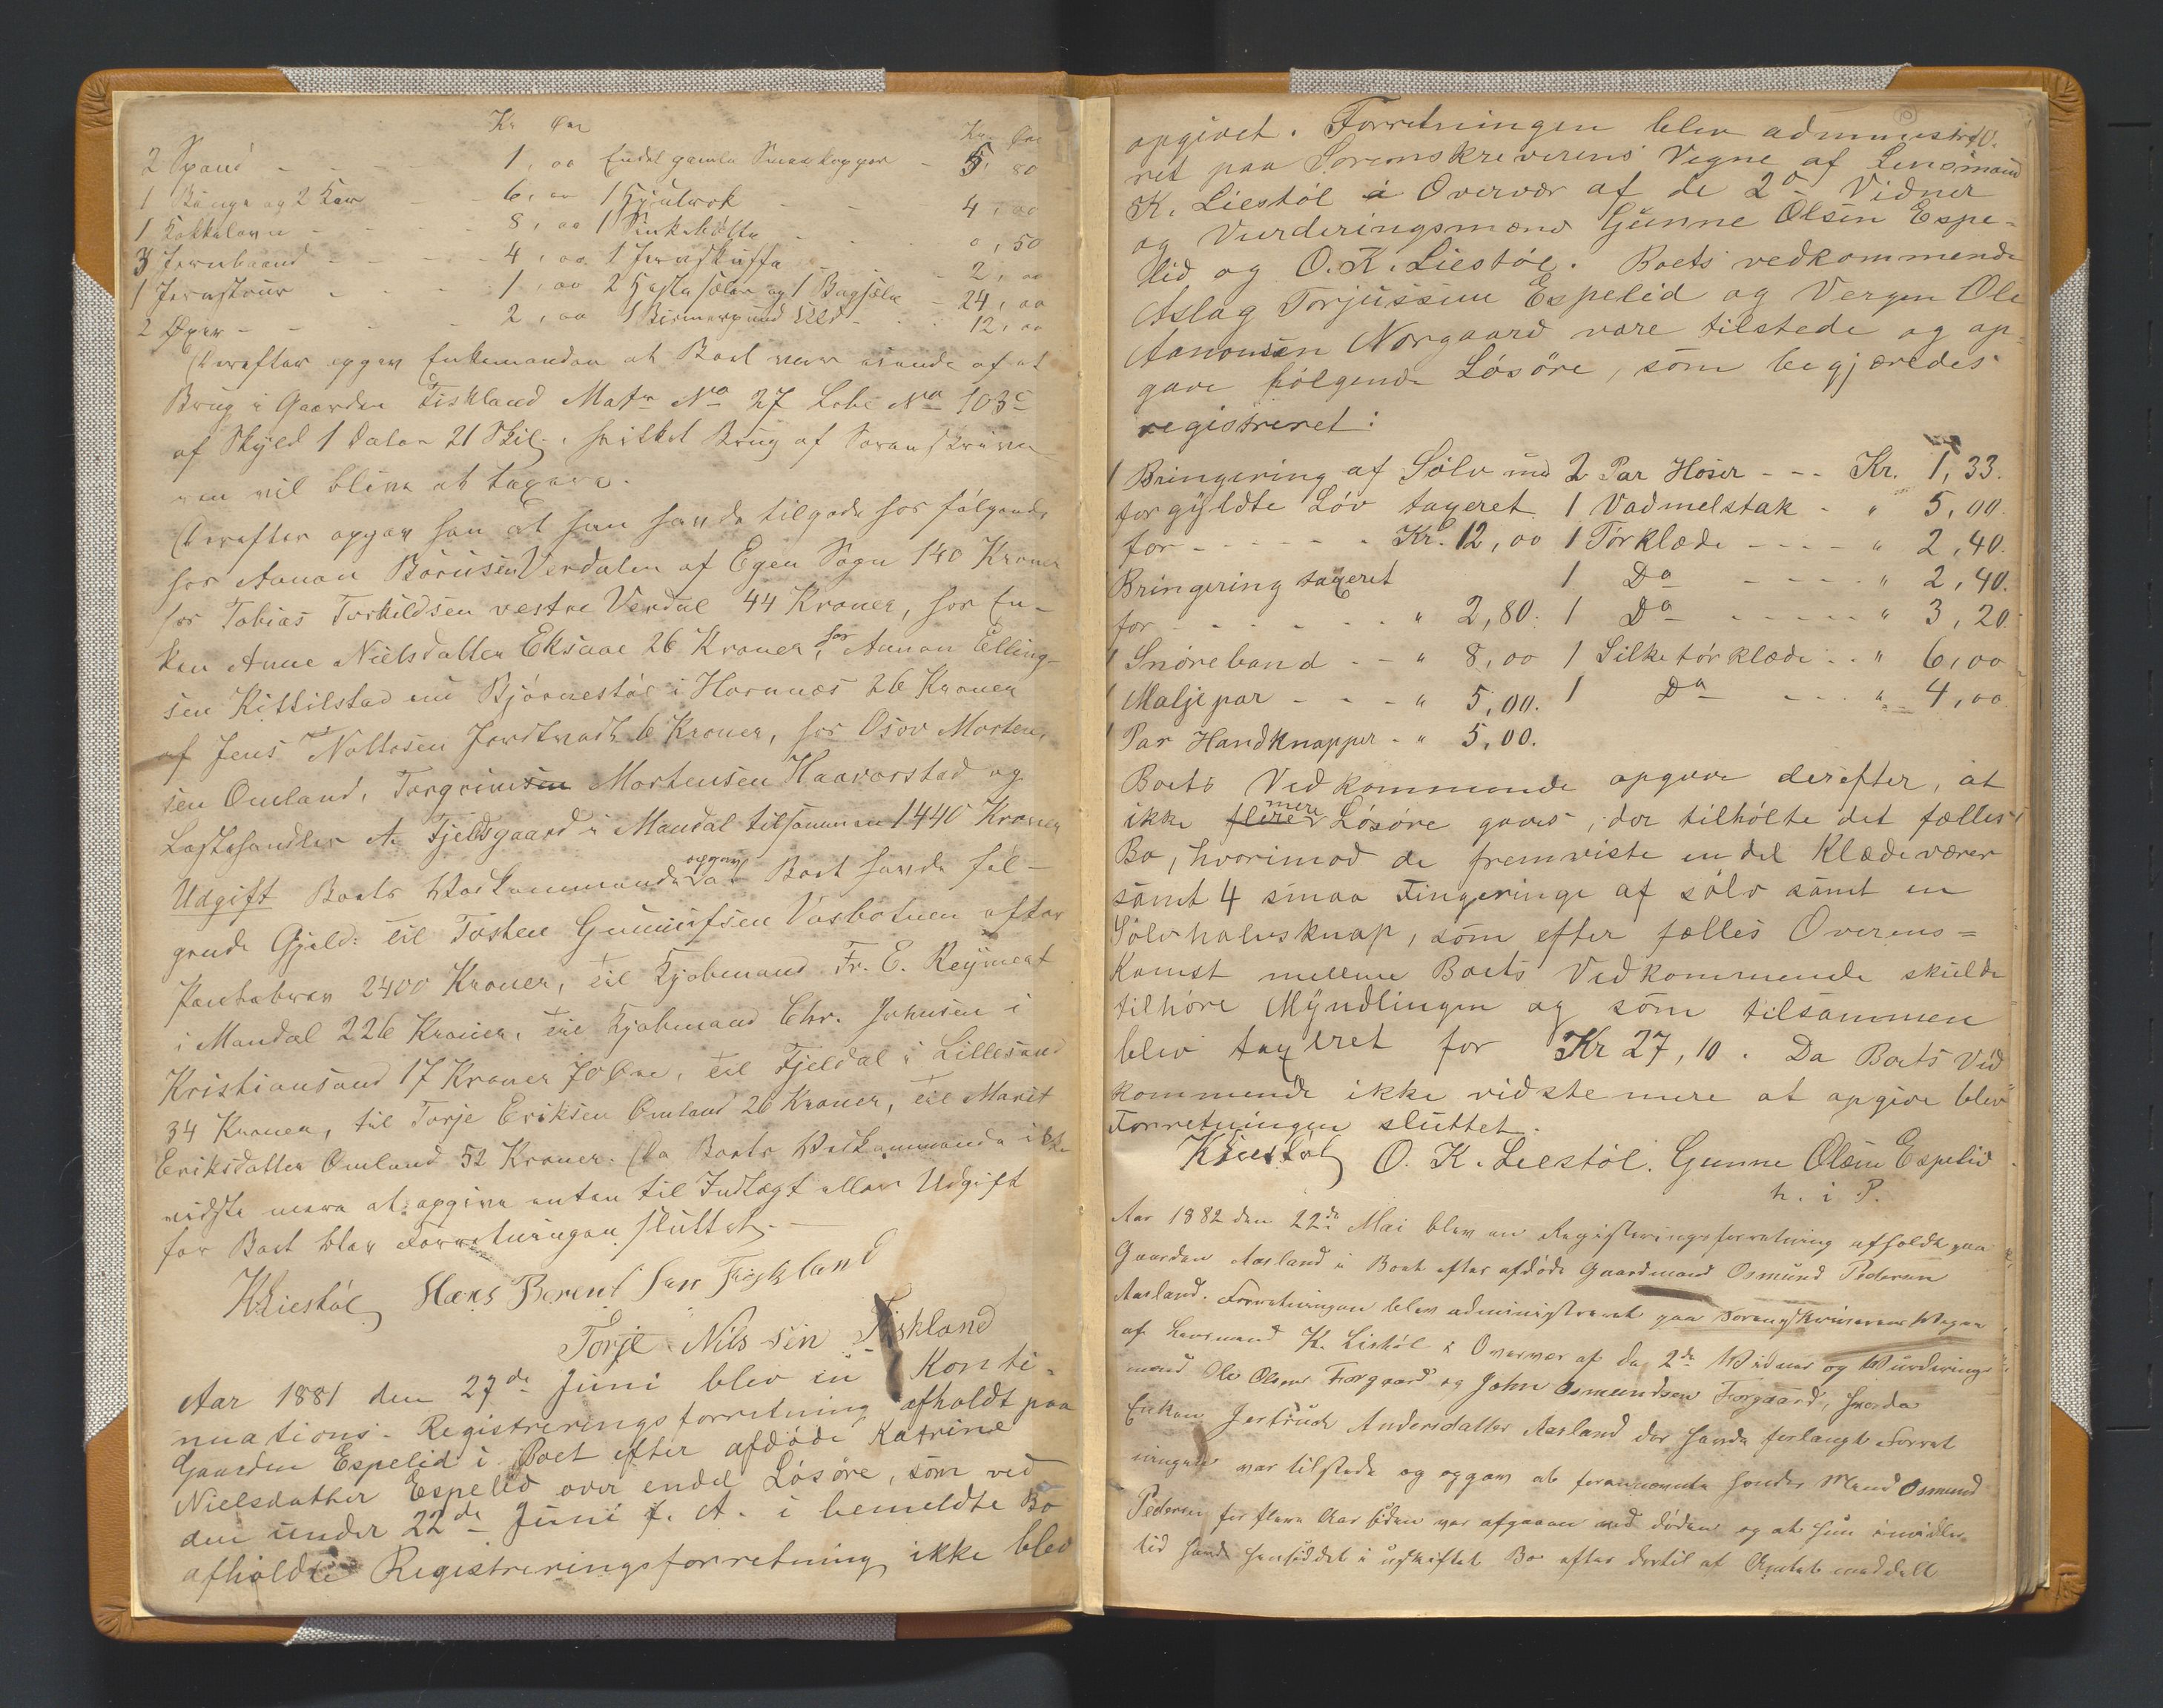 Kr Øre Kr. Øre
2 Spand - - - 1, 00 Endel gamle Smaakopper - 5, 80
1 Bünge og 2 Kar - 6, 00 1 Hjulrok - - 4, 00
1 Kakkelovn - - - - 8, 00 1 Sinkebøtte - - - 0, 50
3 Jernbaand - - - - 4, 00 1 Jernskuffe - - 2, 00
1 Jernstour - - - 1, 00 2 Hestesæler og 1 Bagsæle - 24, 00
2 Øxer - - - - 2, 00 1 Bismerpund Uld - - - 12, 00
Derefter opgav Enkemanden at Boet var eiende af et
Brug i Gaarden Fiskland Matr No 27 Løbe No 103c
af Skyld 1 Daler 21 Skil., hvilket Brug af Sorenskrive
ren vil blive at taxere.
Derefter opgav han at han havde tilgode hos følgende
hos Aanon Børüsen Verdalen af Egen Sogn 140 Kroner
hos Tobias Torkildsen vestre Verdal 44 Kroner, hos En-
ken Anne Nielsdatter Eksaae 26 Kroner, hos Aanon Elling-
sen Kittilstad nu Bjørnestøl i Hornnæs 26 Kroner
af Jens Nottosen Jordtvedt 6 Kroner, hos Osov Morten-
sen Omland, Torgrimsen Mortensen Haaverstad og
Lasthandler A. Fjeldsgaard i Mandal tilsammen 1440 Kroner
Udgift Boets Vedkommende opgav at Boet havde føl-
gende Gjeld: til Tosten Gunnüfsen Vasbotnen efter
Pantebrev 2400 Kroner, til Kjøbmand Fr. E. Reÿmert
i Mandal 226 Kroner, til Kjøbmand Chr. Johnsen i
Kristiansand 17 Kroner 70 Øre, til Fjeldal i Lillesand
34 Kroner, til Torje Eriksen Omland 26 Kroner, til Marit
Eriksdatter Omland 52 Kroner. Da Boets Vedkommende ikke
vidste mere at opgive enten til Indtægt eller Udgift
for Boet blev Forretningen sluttet. —
K Liestøl Hans Berent sen Fiskland
Torje Nils sen Fiskland
Aar 1881 den 27de Juni blev en Konti-
nuations- Registreringsforretning afholdt paa
Gaarden Espelid i Boet efter afdøde Katrine
Nielsdatter Espelid over endel Løsøre, som ved
den under 22de Juni f. A. i bemeldte Bo
afholdte Registreringsforretning ikke blev
10.
opgivet. Forretningen blev administre
ret paa Sorenskreverens Vegne af Lensmand
K. Liestøl i Overvær af de 2de Vidner
og Vurderingsmænd Gunne Olsen Espe=
lid og O. K. Liestøl. Boets vedkommende
Aslag Torjussen Espelid og Vergen Ole
Aanonsen Norgaard vare tilstede og op-
gave følgende Løsøre, som begjæredes
registreret:
1 Bringering af Sølv med 2 Par Hoser - - - Kr. 1, 33.
forgÿldte Løv taxeret 1 Vadmelstak - " 5, 00.
for - - - - - - Kr. 12, 00 1 Tørklæde - - - - " 2, 40.
Bringering taxeret 1 Do - - - - - " 2, 40.
for - - - - - - " 2, 80. 1 Do - - - - - " 3, 20.
1 Snøreband - - " 8, 00 1 Silketørklæde - - " 6, 00
1 Maljepar - - - " 5, 00. 1 Do - - - " 4, 00.
1 Par Handknapper - " 5, 00.
Boets Vedkommende opgave derefter, at
ikke flere mere Løsøre gaves, der tilhølte det fælles
Bo, hvorimod de fremviste en del Klædeværer
samt 4 smaa Fingeringe af sølv samt en
Sølvhalvsknap, som efter fælles Overens=
komst mellem Boets Vedkommende skulde
tilhøre Mÿndlingen og som tilsammen
blev taxeret for Kr 27, 10. Da Boets Ved
kommende ikke vidste mere at opgive blev
Forretningen sluttet.
K Liestøl O. K. Liestøl. Gunne Olsen Espelid
h. i P.
Aar 1882 den 22de Mai blev en Registeringsforretning afholdt paa
Gaarden Aasland i Boet efter afdøde Gaardmand Osmund Pedersen
Aasland. Forretningen blev administreret paa Sorenskriverens Vegne
af Lensmand K. Liestøl i Overvær af de 2de Vidner og Vurderings
mænd Ole Olsen Forgaard og John Osmundsen Forgaard, hvorda
Enken Jertrud Andersdatter Aasland der havde forlangt Forret
ningen var tilstede og opgav at forannævnte hendes Mand Osmund
Pedersen for flere Aar siden var afgaaen ved døden og at hun imidler
tid havde hensiddet i uskiftet Bo efter dertil af Amtet meddelt